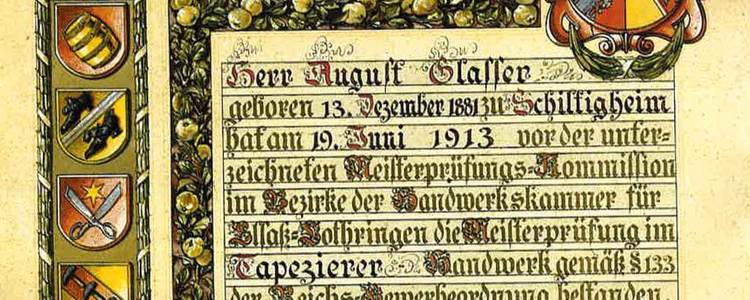 Herr August Glasser
geboren 13. Dezember 1881 zu Schiltigheim
hat am 19. Juni 1913 vor der unter=
zeichneten Meisterprüfungs=Kommission
im Bezirke der Handwerkskammer für
Elsaß=Lothringen die Meisterprüfung im
Tapezierer Handwerk gemäß § 133
der Reichs=Gewerbeordnung bestanden.